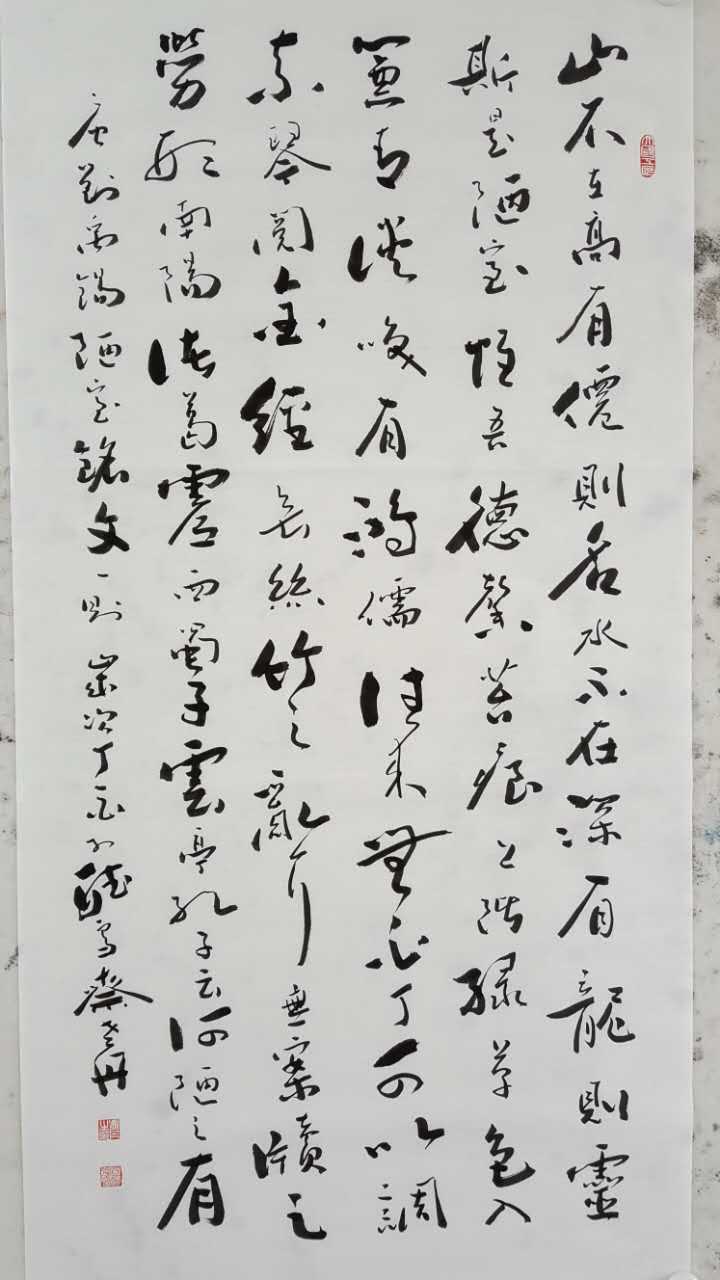 山不在高有僊則名水不在深有龍則靈
斯是陋室惟吾德馨苔痕上階綠草色入
簾青談咲有鴻儒往來無白丁可以調
素琴閱金經無絲竹之亂耳無案牘之
勞形南陽諸葛廬西蜀子雲亭孔子云何陋之有
唐劉禹錫陋室銘文一則歲次丁酉